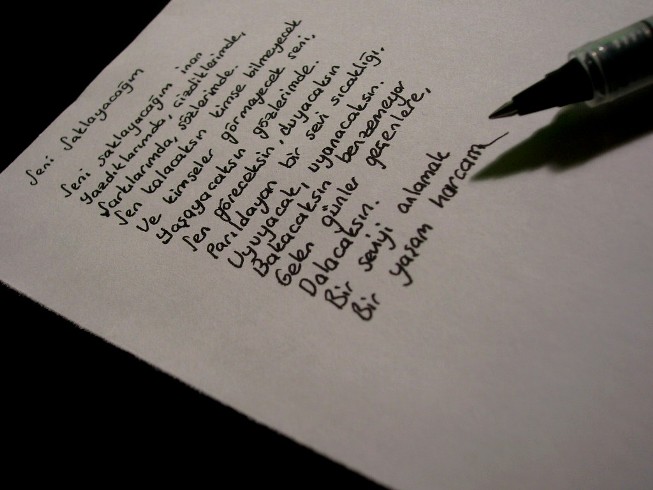 Seni Saklayacağım
Seni saklayacağım inan
Yazdıklarımda, çizdiklerimde,
Şarkılarımda, sözlerimde.
Sen kalacaksın kimse bilmeyecek
Ve kimseler görmeyecek seni,
Yaşayacaksın gözlerimde.
Sen göreceksin, duyacaksın
Parıldayan bir sevi sıcaklığı,
Uyuyacak, uyanacaksın.
Bakacaksın benzemeyor
Gelen günler geçenlere,
Dalacaksın.
Bir seviyi anlamak
Bir yaşam harcam